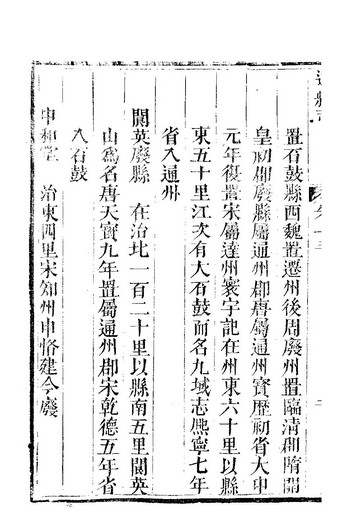 達縣志
置石鼓縣西魏置遷州後周廢州置臨清郡隋開
皇初郡廢縣屬通州郡唐屬通州寶歷初省大中
元年復置宋屬達州寰宇記在州東六十里以縣
東五十里江次有大石鼓而名九域志熙寧七年
省入通州
閬英廢縣 在治北一百二十里以縣南五里閬英
山爲名唐天寶九年置屬通州郡宋乾德五年省
入石鼓
中和堂 治東四里宋知州申恪建今廢